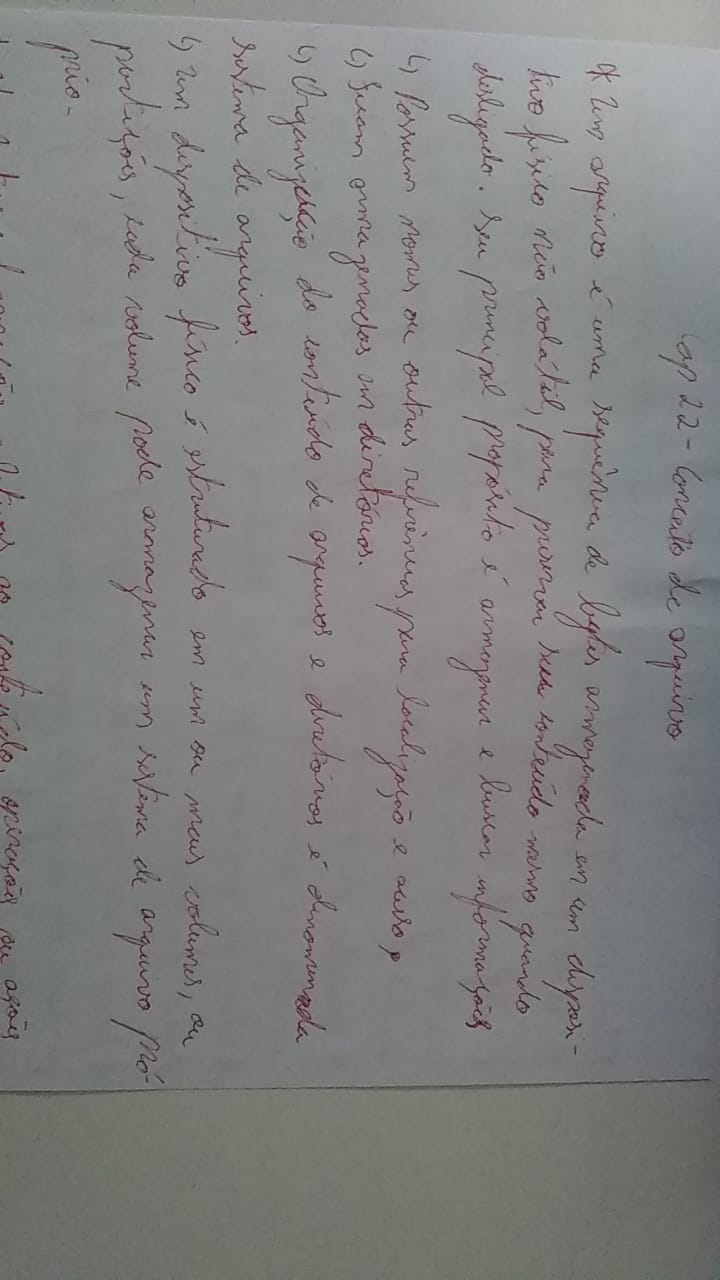 Cap 22 - Conceito de arquivo
* Um arquivo é uma sequência de bytes armazenada em um disposi-
tivo físico não volátil, para preservar seu conteúdo mesmo quando
desligado. Seu principal propósito é armazenar e buscar informações
↳ Possuem nomes ou outras referências para localização e acesso.
↳ Ficam armazenados em diretórios.
↳ Organização do conteúdo de arquivos e diretórios é denominada
sistema de arquivos.
↳ Um dispositivo físico é estruturado em um ou mais volumes, ou
partições, cada volume pode armazenar um sistema de arquivo pró-
prio.
ao conteúdo, operações ou ações